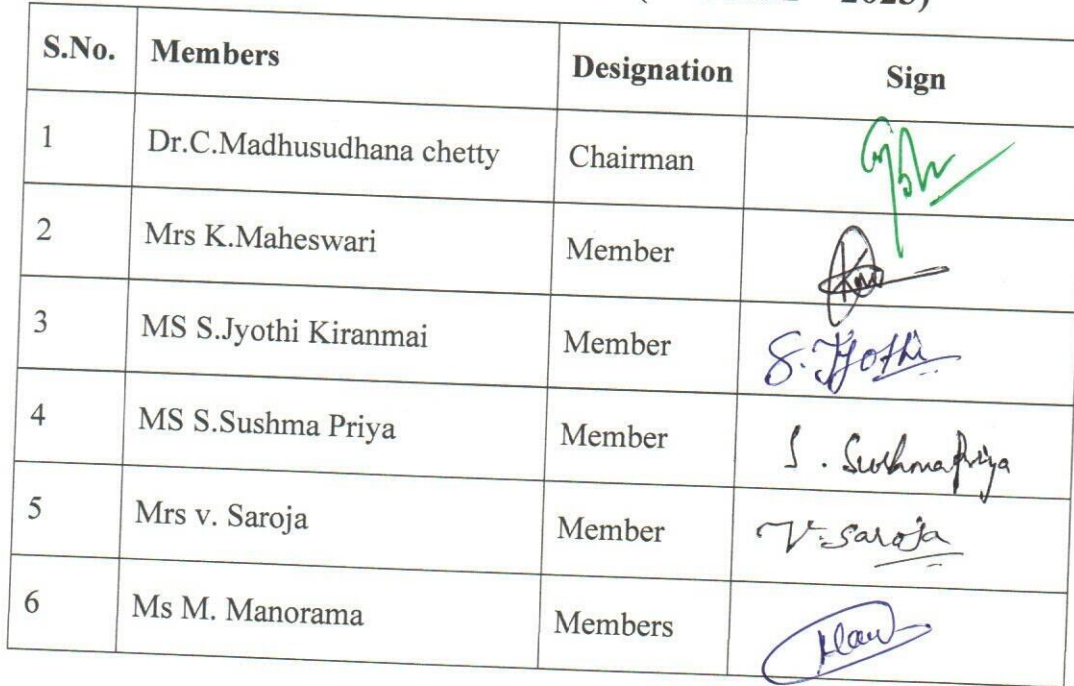 2023)
S.No. Members Designation Sign
1 Dr.C.Madhusudhana chetty Chairman
2 Mrs K.Maheswari Member
3 MS S.Jyothi Kiranmai Member S. Jyothi
4 MS S.Sushma Priya Member S. SushmaPriya
5 Mrs v. Saroja Member V. Saroja
6 Ms M. Manorama Members